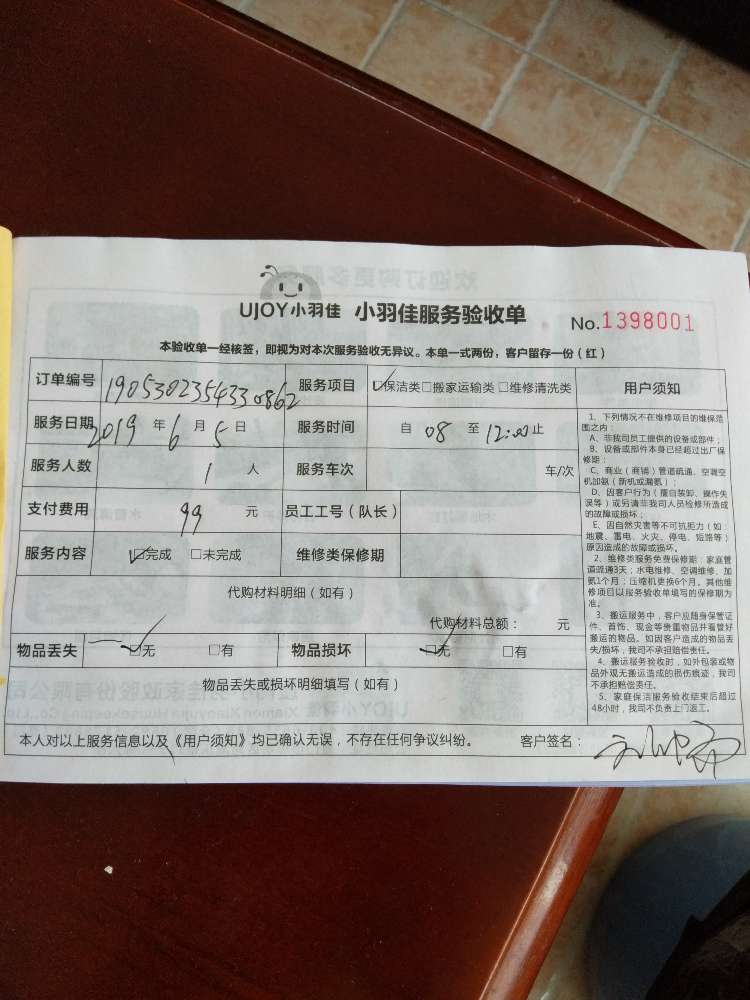 UJOY小羽佳 小羽佳服务验收单 No.1398001
本验收单一经核签，即视为对本次服务验收无异议。本单一式两份，客户留存一份（红）
订单编号 1905302354330862 服务项目 ☑保洁类□搬家运输类□维修清洗类
服务日期 2019 年 6 月 5 日 服务时间 自 08 至 12:00止
服务人数 1 人 服务车次 车/次
支付费用 99 元 员工工号（队长）
服务内容 ☑完成 □未完成 维修类保修期
代购材料明细（如有）
代购材料总额： 元
物品丢失 ☑无 □有 物品损坏 ☑无 □有
物品丢失或损坏明细填写（如有）
用户须知
1、下列情况不在维修项目的维保范
围之内：
A、非我司员工提供的设备或部件；
B、设备或部件本身已经超过出厂保
修期；
C、商业（商铺）管道疏通、空调空
机加氨（新机或漏氟）；
D、因客户行为（擅自装卸、操作失
误等）或另请非我司人员检修所造成
的故障或损坏；
E、因自然灾害等不可抗拒力（如：
地震、雷电、火灾、停电、短路等）
原因造成的故障或损坏。
2、维修类服务免费保修期：家庭管
道疏通3天；水电维修、空调维修、加
氟1个月；压缩机更换6个月。其他维
修项目以服务验收单填写的保修期为
准。
3、搬运服务中，客户应随身保管证
件、首饰、现金等贵重物品并看管好
搬运的物品。如因客户造成的物品丢
失/损坏，我司不承担赔偿责任。
4、搬运服务验收时，如外包装或物
品外观无搬运造成的损伤痕迹，我司
不承担赔偿责任。
5、家庭保洁服务验收结束后超过
48小时，我司不负责上门返工。
本人对以上服务信息以及《用户须知》均已确认无误，不存在任何争议纠纷。 客户签名：